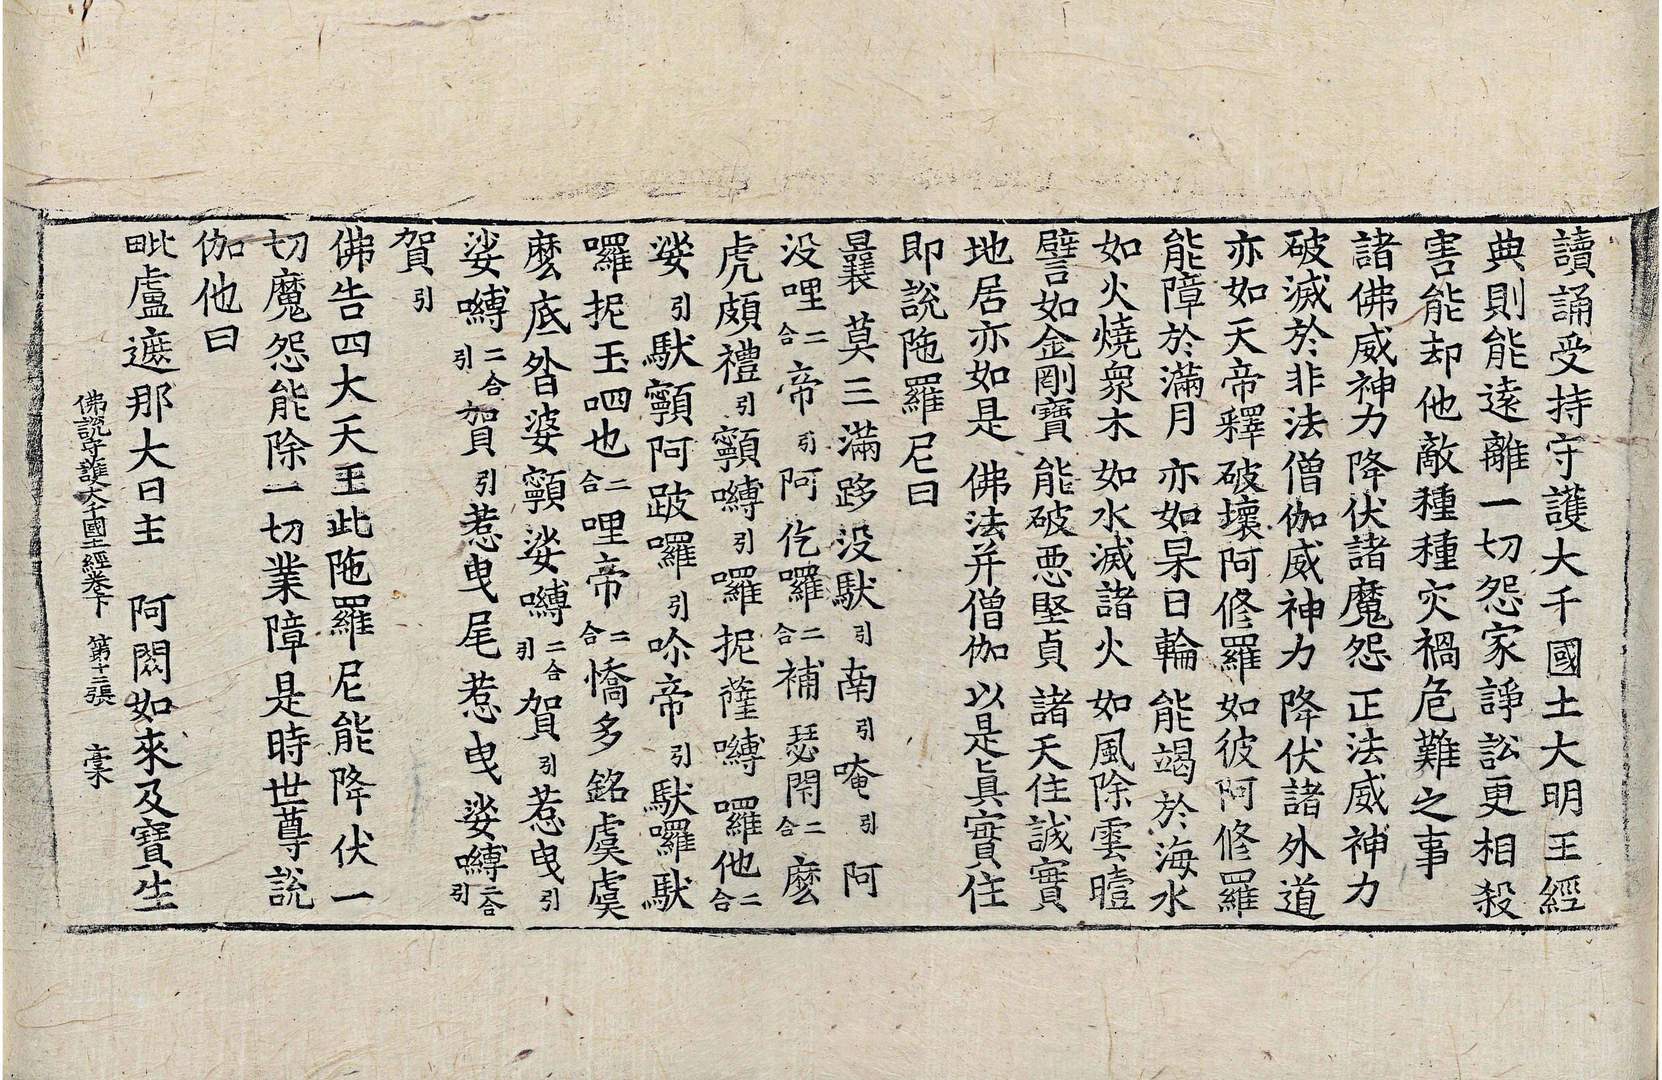 讀誦受持守護大千國土大明王經
典則能遠離一切怨家諍訟更相殺
害能却他敵種種灾禍危難之事
諸佛威神力降伏諸魔怨 正法威神力
破滅於非法僧伽威神力 降伏諸外道
亦如天帝釋破壞阿修羅 如彼阿修羅
能障於滿月 亦如杲日輪 能竭於海水
如火燒衆木 如水滅諸火 如風除雲曀
譬如金剛寶 能破悪堅貞 諸天住誠實
地居亦如是 佛法并僧伽 以是真實住
即說陁羅尼曰
曩莫三滿跢没馱引南引唵引阿
没哩二合帝引阿仡囉二合補瑟閇二合麽
虎頗禮引顐嚩引囉抳薩嚩囉他二合
娑引馱顐阿跛囉引唅帝引馱囉馱
囉抳玉呬也二合哩帝二合憍多銘虞虞
麽底沓婆顐娑嚩二合引賀引惹曳引
娑嚩二合引賀引惹曳尾惹曳娑嚩二合引
賀引
佛告四大天王此陁羅尼能降伏一
切魔怨能除一切業障是時世尊說
伽他曰
毗盧遮那大日主 阿閦如來及寶生
佛說守護大千國土經卷下 第十二張 槀